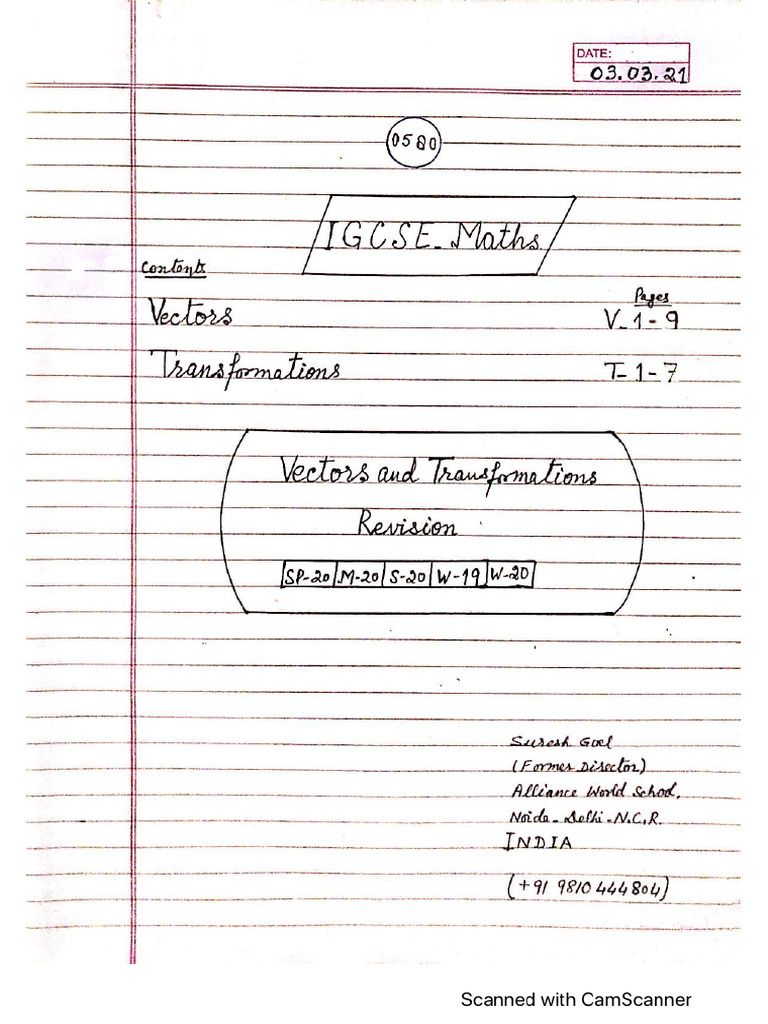 DATE:
03.03.21
0580
IGCSE-Maths
Contents
Pages
Vectors V-1-9
Transformations T-1-7
Vectors and Transformations
Revision
SP-20 M-20 S-20 W-19 W-20
Suresh Goel
(Former Director)
Alliance World School,
Noida-Delhi-N.C.R.
INDIA
(+91 9810444804)
Scanned with CamScanner